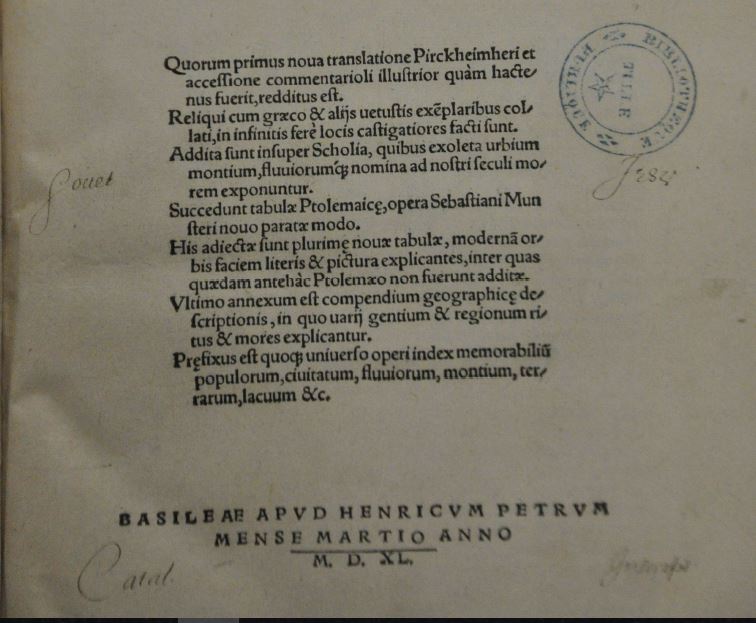 Quorum primus noua translatione Pirckheimheri et
accessione commentarioli illustrior quàm hacte/
nus fuerit, redditus est.
Reliqui cum græco & alijs uetustis exẽplaribus col/
lati, in infinitis ferè locis castigatiores facti sunt.
Addita sunt insuper Scholia, quibus exoleta urbium
montium, fluuiorumq́ꝫ nomina ad nostri seculi mo/
rem exponuntur.
Succedunt tabulæ Ptolemaicę, opera Sebastiani Mun
steri nouo paratæ modo.
His adiectæ sunt plurimę nouæ tabulæ, modernã or/
bis faciem literis & pictura explicantes, inter quas
quædam antehàc Ptolemæo non fuerunt additæ.
Vltimo annexum est compendium geographicę de/
scriptionis, in quo uarij gentium & regionum ri/
tus & mores explicantur.
Pręfixus est quoqꝫ uniuerso operi index memorabiliũ
populorum, ciuitatum, fluuiorum, montium, ter/
rarum, lacuum &c.
BASILEAE APVD HENRICVM PETRVM
MENSE MARTIO ANNO
M. D. XL.
BIBLIOTHEQUE
PUBLIQUE
Catal.